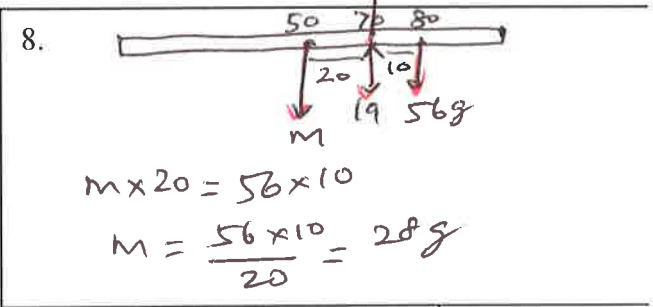 8.
50 70 80
20 10
M 19 56g
m x 20 = 56 x 10
M = 56 x 10 / 20 = 28 g